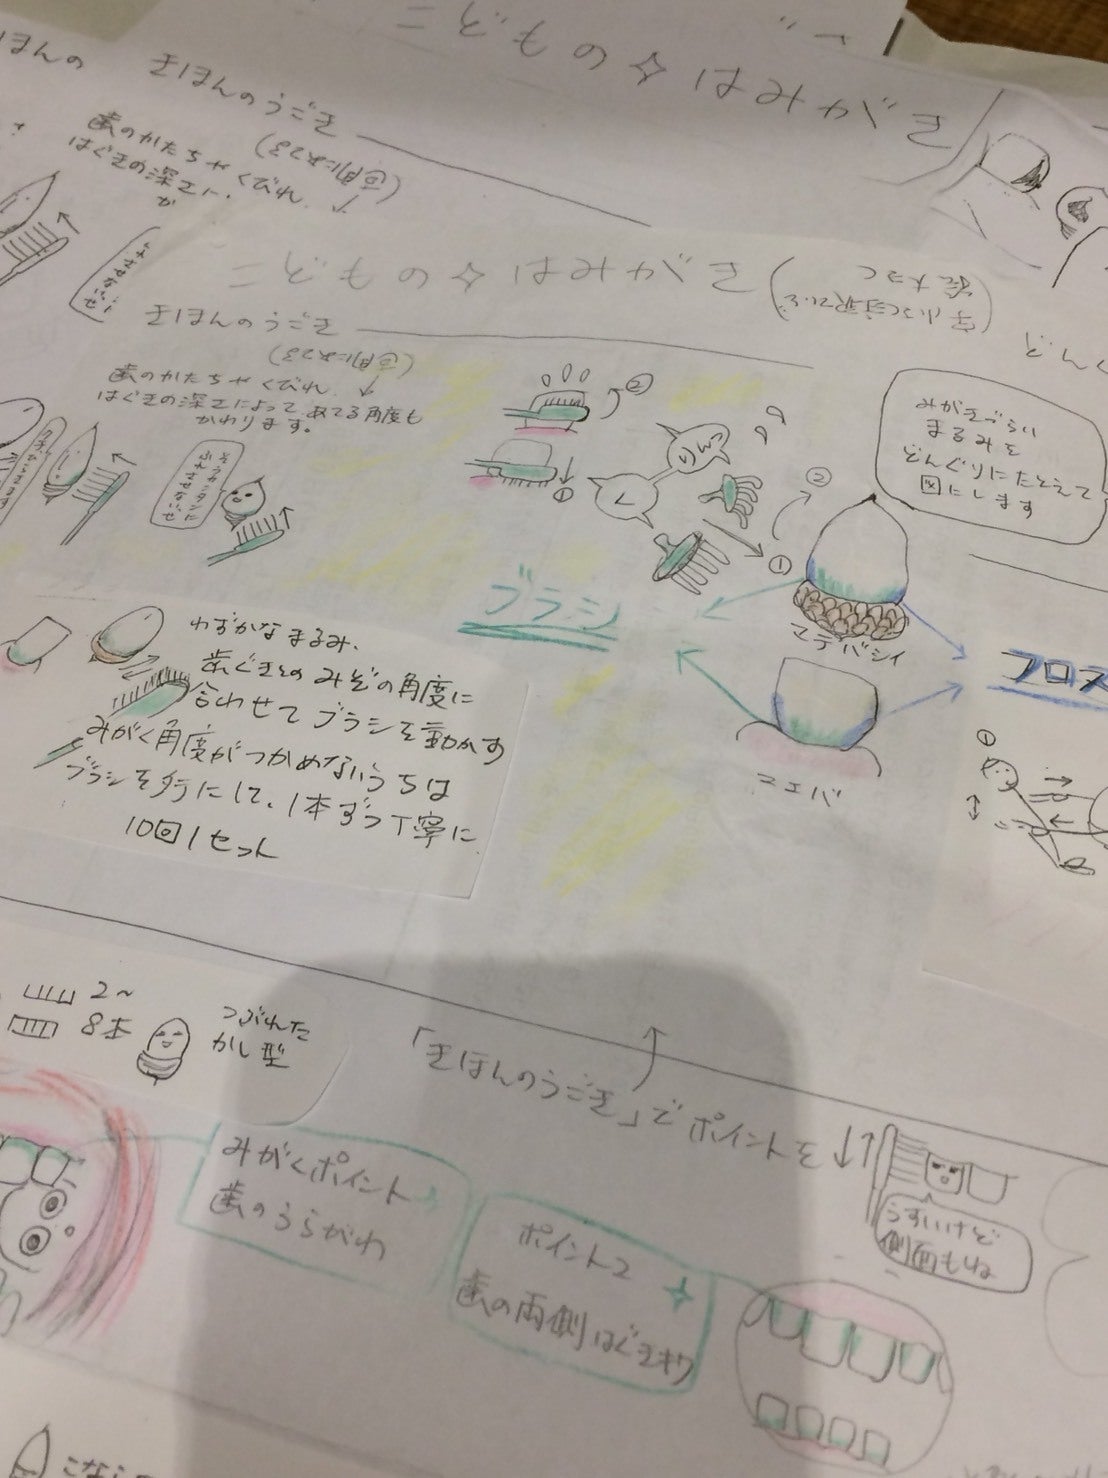 こどもの✧はみがき
きほんのうごき
歯のかたちや くびれ、
はぐきの深さに、
が
こどもの✧はみがき
きほんのうごき
歯のかたちや くびれ、
はぐきの深さによって あてる角度も
かわります。
②
①
りんっ
く
②
①
みがきづらい
まるみを
どんぐりにたとえて
図にします
ブラシ
マテバシイ
フロス
マエバ
①
わずかな まるみ、
歯ぐきとの みぞの角度に
合わせて ブラシを動かす
みがく角度が つかめないうちは
ブラシを手にして、1本ずつ丁寧に
10回1セット
2~
8本
つぶれた
かし型
「きほんのうごき」で ポイントを
みがくポイント
歯のうらがわ
ポイント2
歯の両側はぐきキワ
うすいけど
側面もね
こなら